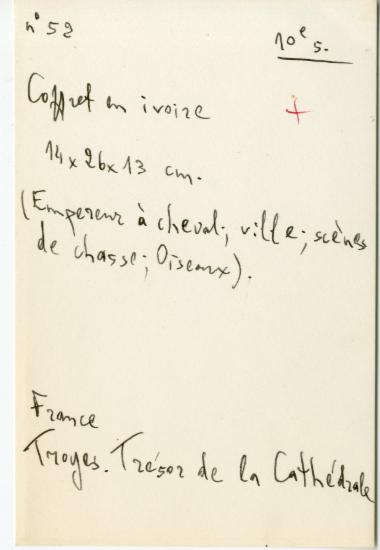 n° 52
10e s.
Coffret en ivoire
+
14 x 26 x 13 cm.
(Empereur à cheval; ville; scènes
de chasse; Oiseaux).
France
Troyes. Trésor de la Cathédrale